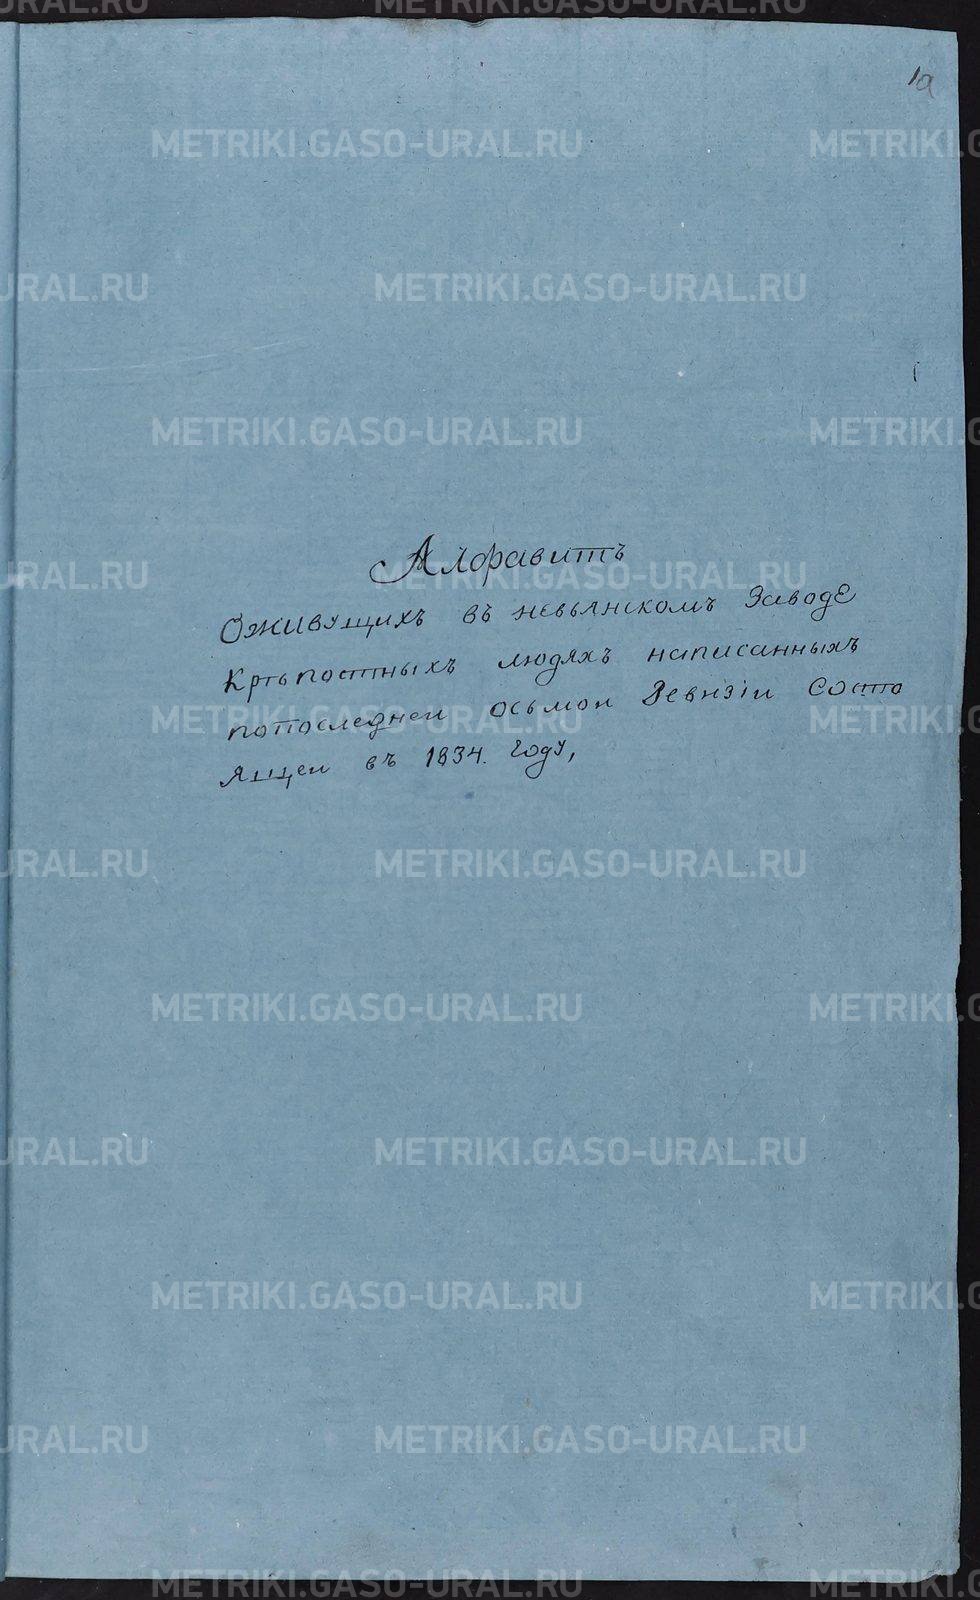 1а
Алфавитъ
Оживущихъ въ невьянскомъ Заводе
Крѣпостныхъ людяхъ написанныхъ
попоследнеи осьмои Ревизіи Состо
ящеи въ 1834. году,
METRIKI.GASO-URAL.RU